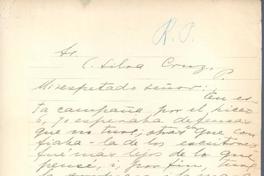 R. P.
Sr.
C. Silva Cruz. P
Mi respetado señor: En es-
ta campaña por el Liceo
6, yo esperaba defensas
que no tuve, otras que con-
fiaba - la de los escritores
fué mas lejos de lo que
pensé, i, por fin,